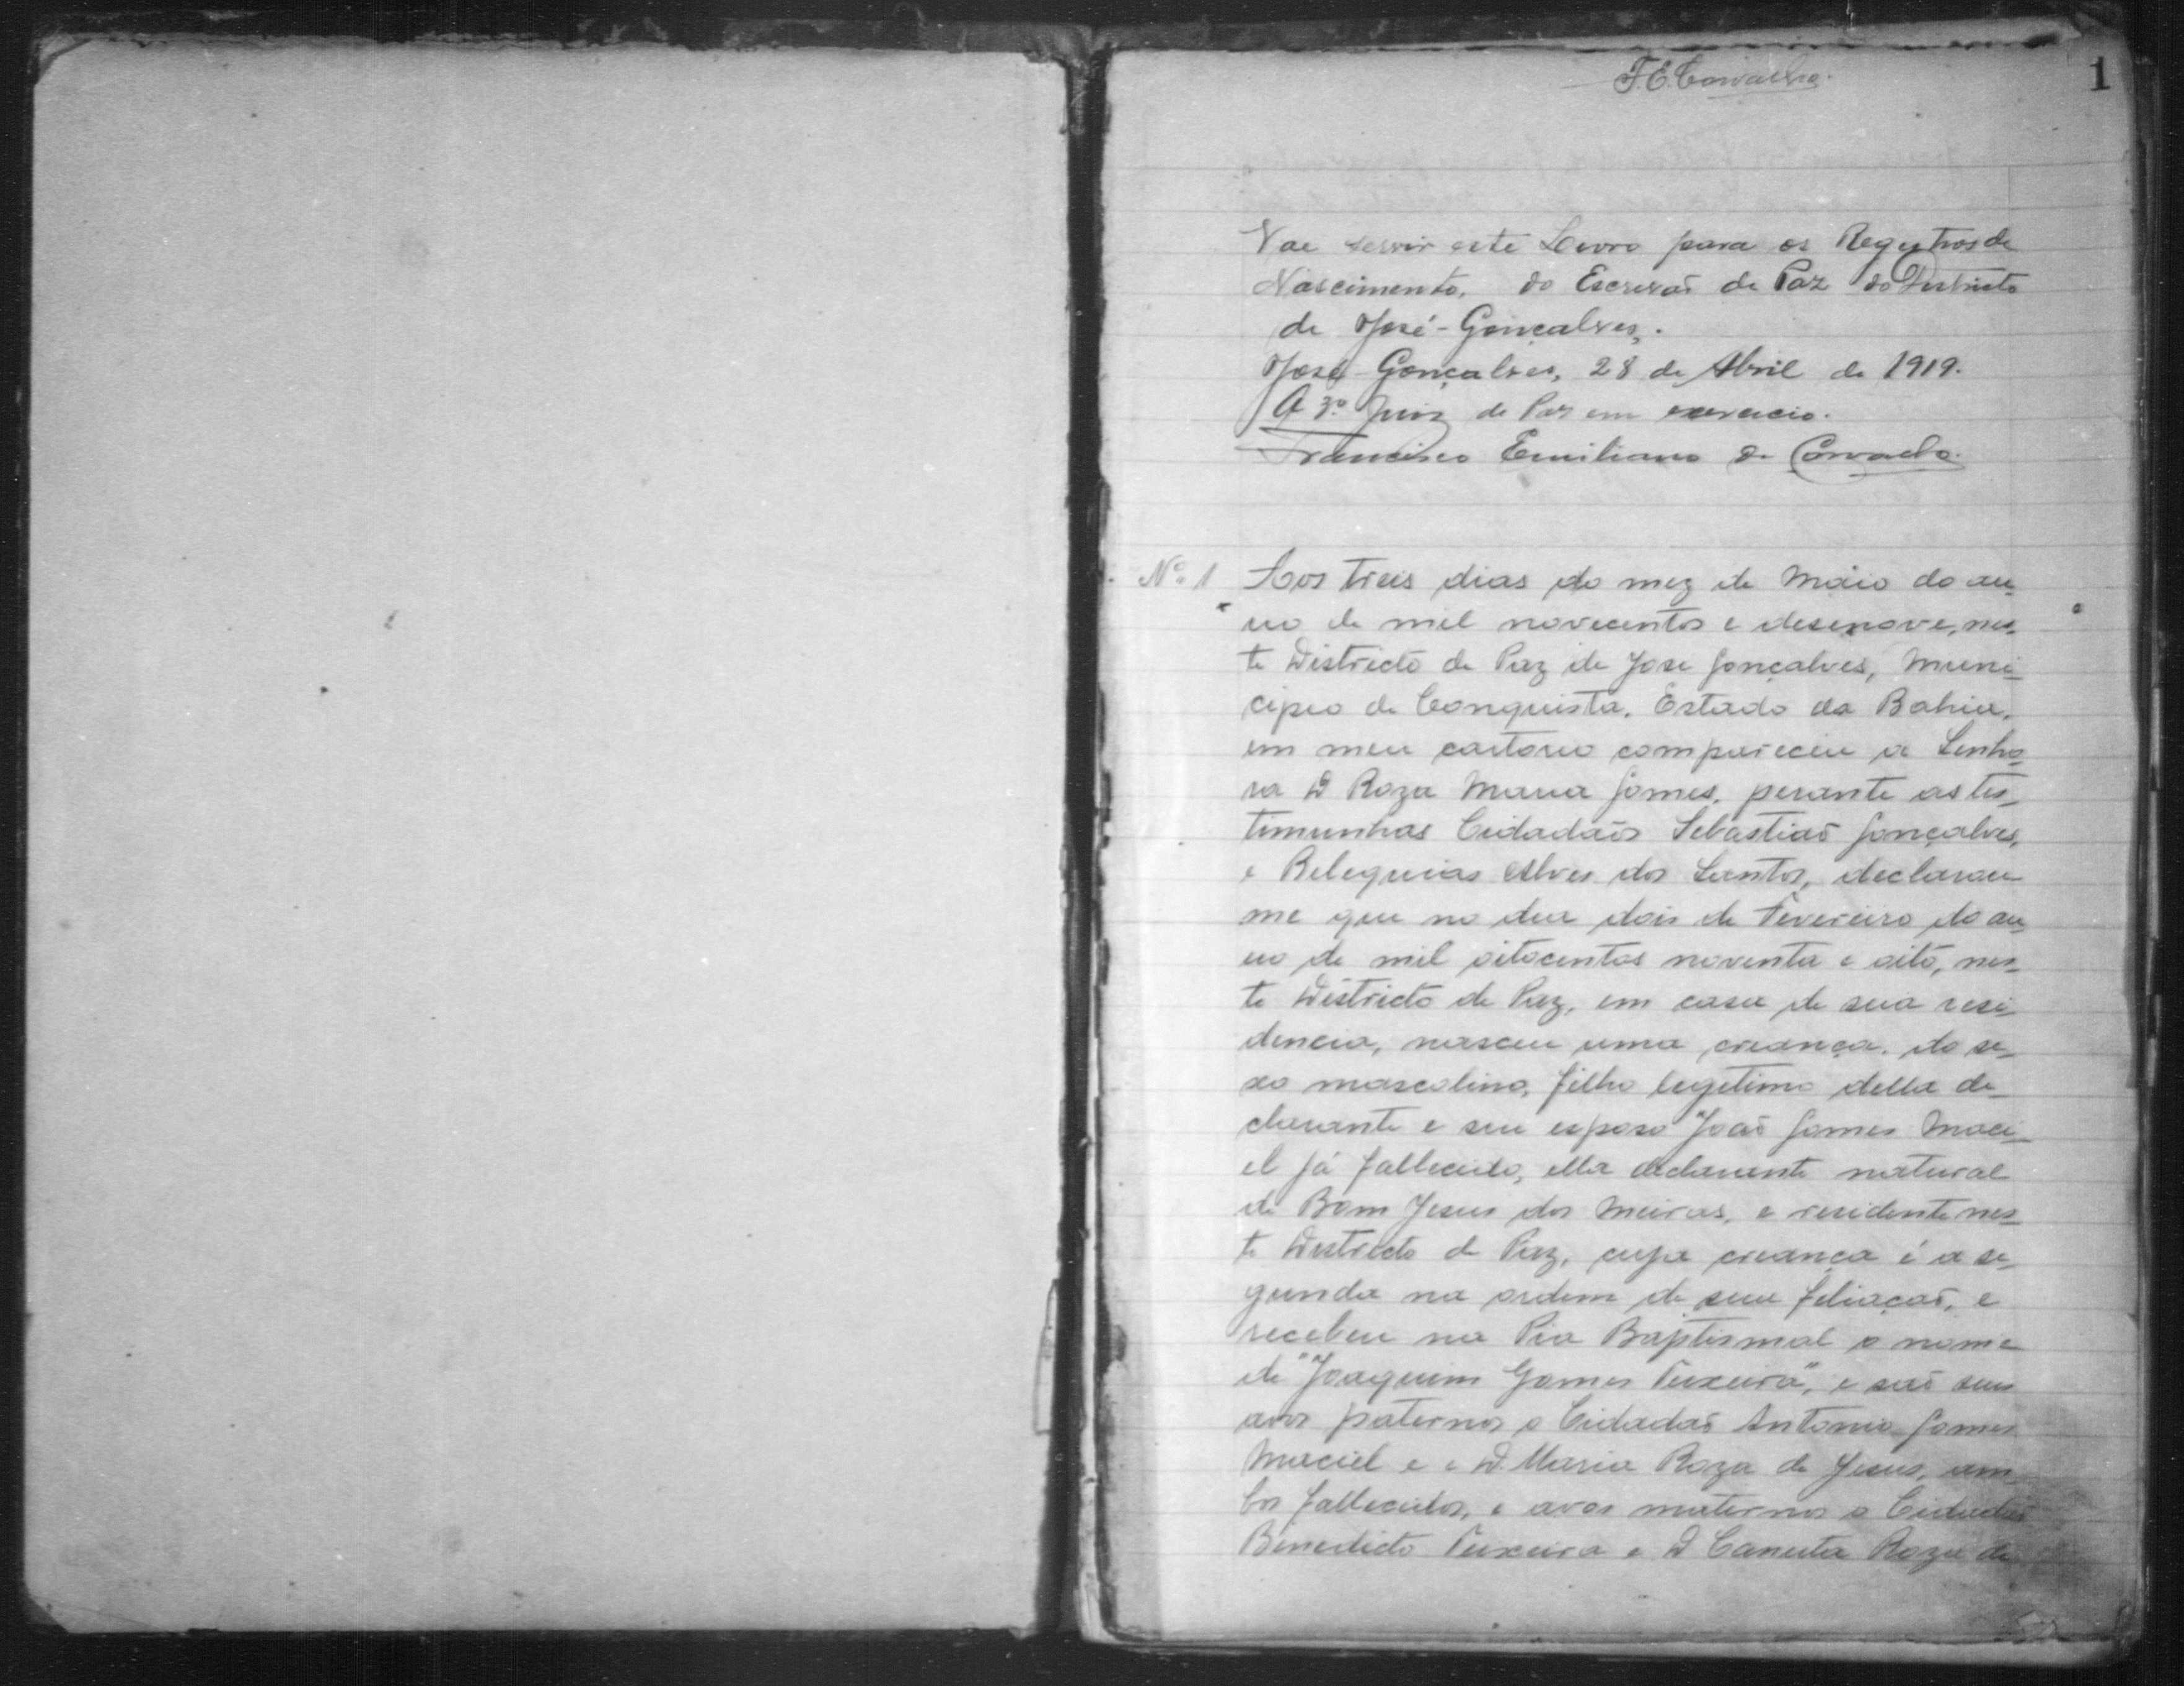 F. E. Carvalho.
1
Vae servir este Livro para os Registros de
Nascimento, do Escrivaõ de Paz do Districto
de José-Gonçalves,.
José-Gonçalves, 28 de Abril de 1919.
O 3º Juiz de Paz em exercicio.
Francisco Emiliano de Carvalho.
Nº 1 Aos treis dias do mez de Maio do an-
no de mil novecentos e desenove, nes-
te Districto de Paz de Jose Gonçalves, Muni-
cipio de Conquista, Estado da Bahia,
em meu cartorio compareceu a Senho-
ra D Roza Maria Gomes, perante as tes-
timunhas Cidadaõs Sebastiaõ Gonçalves,
e Beleguias Alves dos Santos, declarou
me que no dia dois de Fevereiro do an-
no de mil oitocentos noventa e oito, nes-
te Districto de Paz, em casa de sua resi-
dencia, nasceu uma creança, do se-
xo mascolino, filho legitimo della de-
clarante e seu esposo "João Gomes Maci-
el já fallecido, ella declarante natural
de Bom Jesus dos Meiras, e residente nes-
te Districto de Paz, cuja creança é a se-
gunda na ordem de sua filiaçaõ, e
recebeu na Pia Baptismal o nome
de "Joaquim Gomes Teixeira", e saõ seus
avos paternos o Cidadaõ Antonio Gomes
Maciel e e D. Maria Roza de Jesus, am-
bos fallecidos, e avos maternos o Cidadaõ
Benedicto Teixeira e D Canuta Roza de